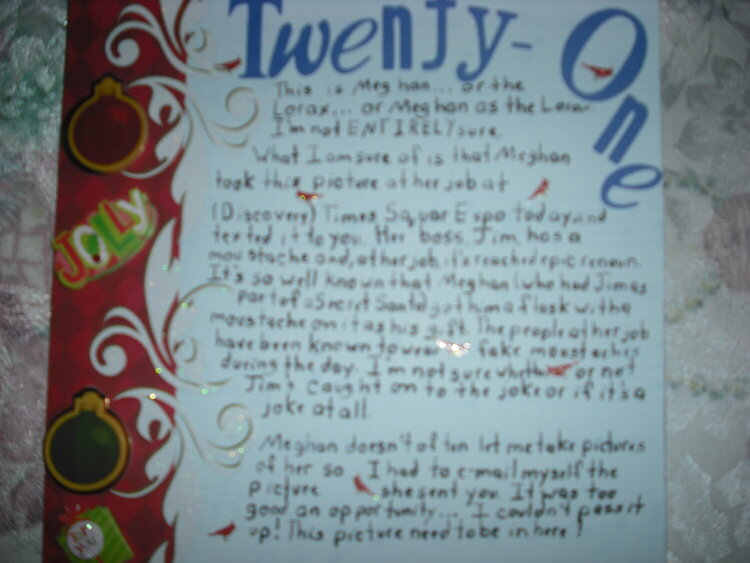 Twenty-One
This is Meghan... or the
Lorax... or Meghan as the Lorax
I'm not ENTIRELY sure.
What I am sure of is that Meghan
took this picture at her job at
(Discovery) Times Squar Expo today, and
texted it to you. Her boss, Jim, has a
moustache and, at her job, it's reached epic renown.
It's so well known that Meghan (who had Jim as
part of a Secret Santa) got him a flask with a
moustache on it as his gift. The people at her job
have been known to wear fake moustaches
during the day. I'm not sure whether or not
Jim's caught on to the joke or if it's a
joke at all.
Meghan doesn't often let me take pictures
of her so I had to e-mail myself the
picture she sent you. It was too
good an opportunity... I couldn't pass it
up! This picture need to be in here!
JOLLY